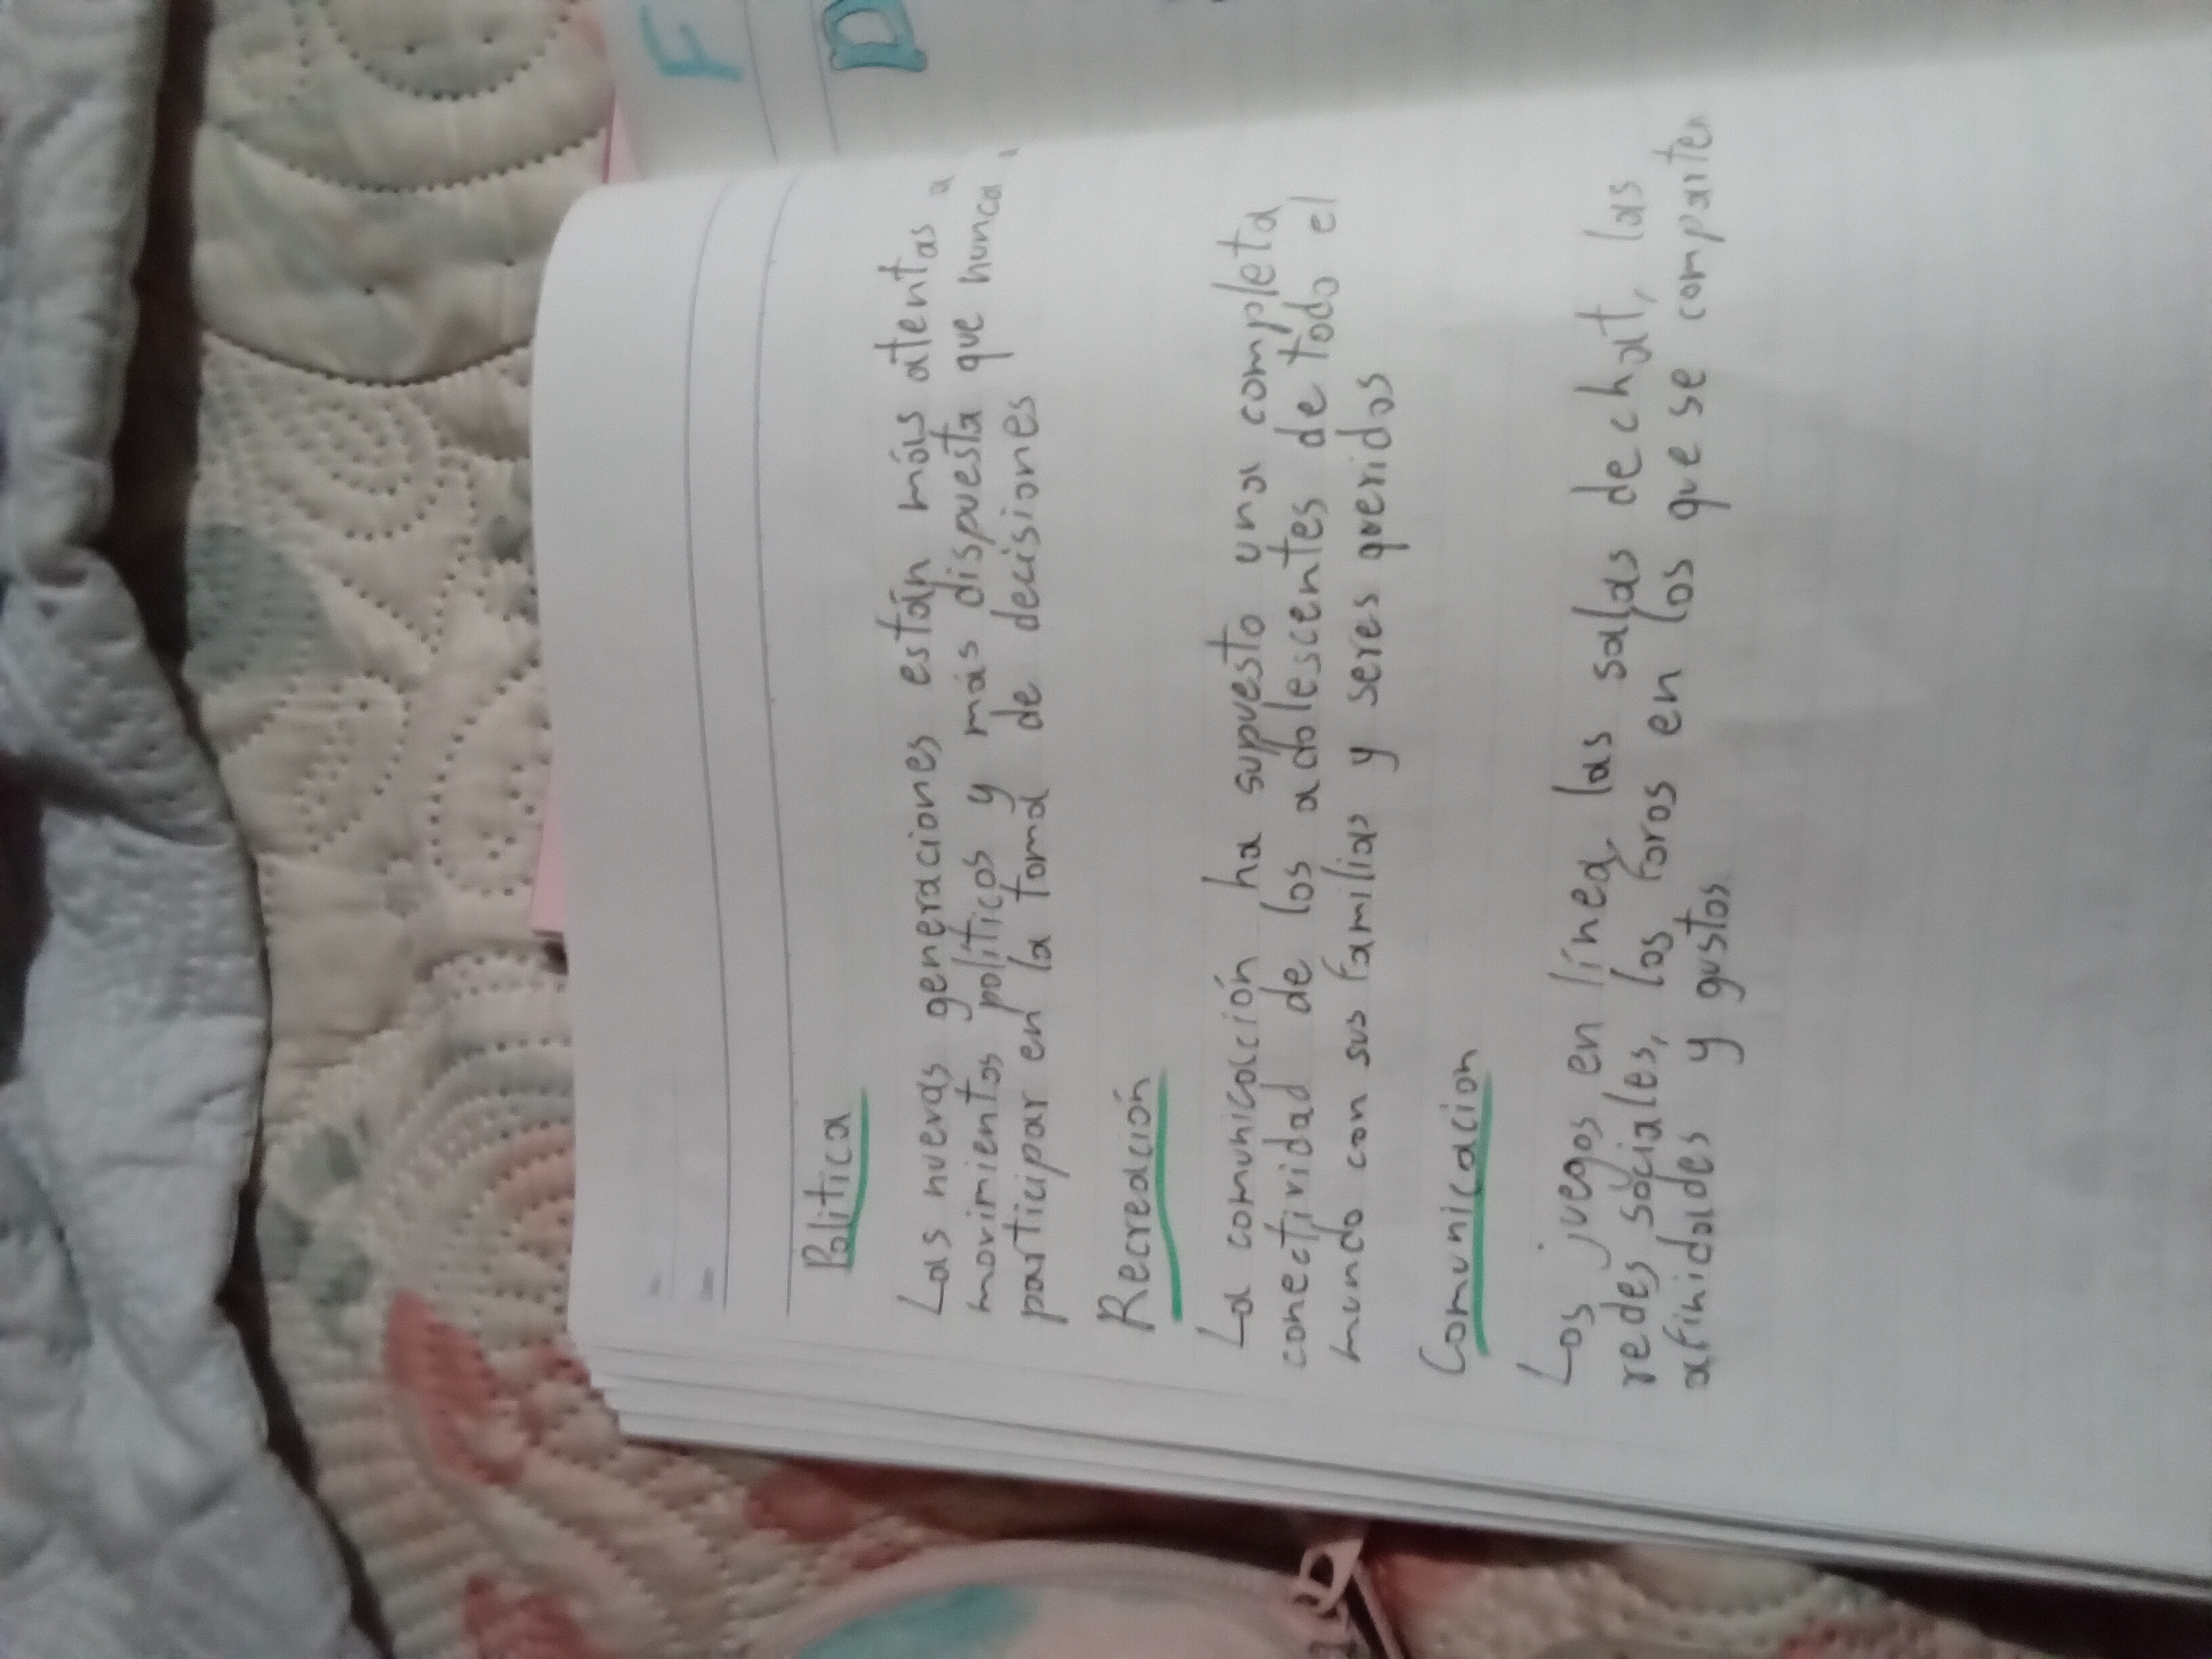 Política
Las nuevas generaciones están más atentas a
movimientos políticos y más dispuesta que nunca,
participar en la toma de decisiones
Recreación
La comunicación ha supuesto una completa
conectividad de los adolescentes de todo el
mundo con sus familias y seres queridos
Comunicacion
Los juegos en línea, las salas de chat, las
redes sociales, los foros en los que se comparten
afinidades y gustos
F
D